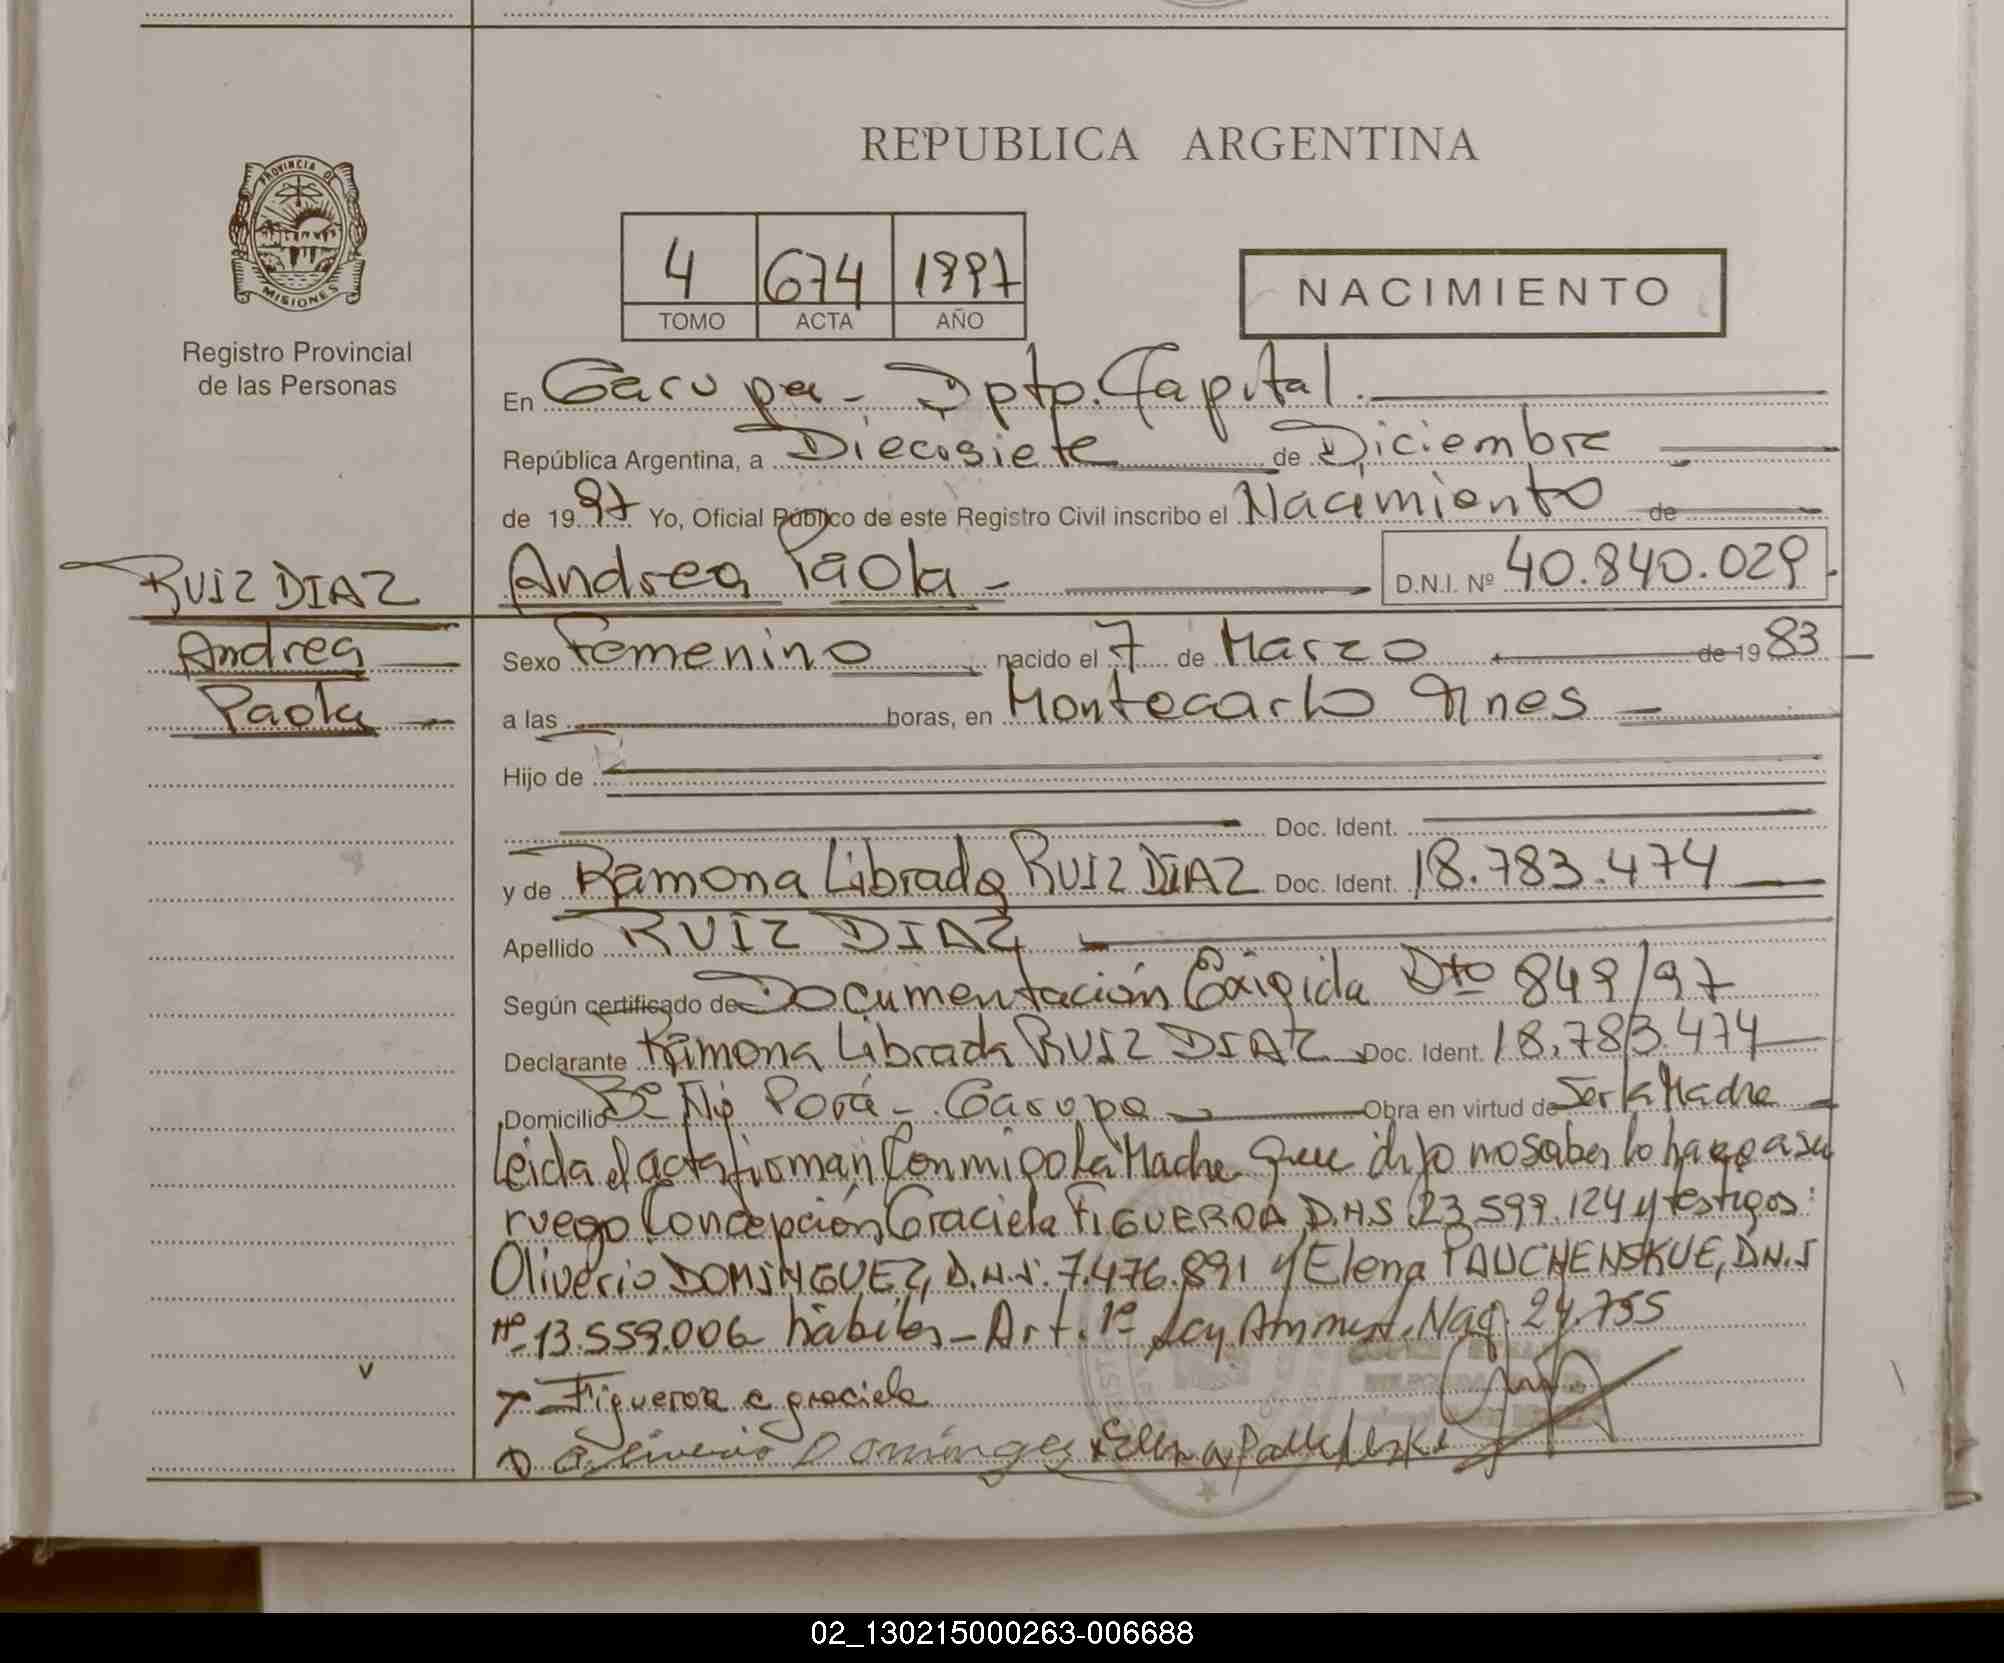 REPUBLICA ARGENTINA
PROVINCIA DE
MISIONES
Registro Provincial
de las Personas
4 674 1997
TOMO ACTA AÑO
NACIMIENTO
En Garupa - Dpto. Capital.
República Argentina, a Diecisiete de Diciembre
de 1997 Yo, Oficial Público de este Registro Civil inscribo el Nacimiento de
RUIZ DIAZ
Andrea
Paola
Andrea Paola - D.N.I. Nº 40.840.029
Sexo Femenino nacido el 7 de Marzo de 1983
a las horas, en Montecarlo Mnes
Hijo de
Doc. Ident.
y de Ramona Librada RUIZ DIAZ Doc. Ident. 18.783.474
Apellido RUIZ DIAZ
Según certificado de Documentación Exigida Dto 849/97
Declarante Ramona Librada RUIZ DIAZ Doc. Ident. 18.783.474
Domicilio Bº Ñu Porá - Garupa Obra en virtud de Ser la Madre
Leida el acta firman Conmigo la Madre que dijo no saber lo hace a su
ruego Concepción Graciela FIGUEROA D.N.I 23.599.124 y testigos:
Oliverio DOMINGUEZ, D.N.I. 7.476.891 y Elena PAUCHENSKUE, D.N.I
Nº 13.559.006 hábiles - Art. 1º Ley Amnist. Nac. 24.755
Figueroa c graciela
Oliverio Dominges Elena
02_130215000263-006688